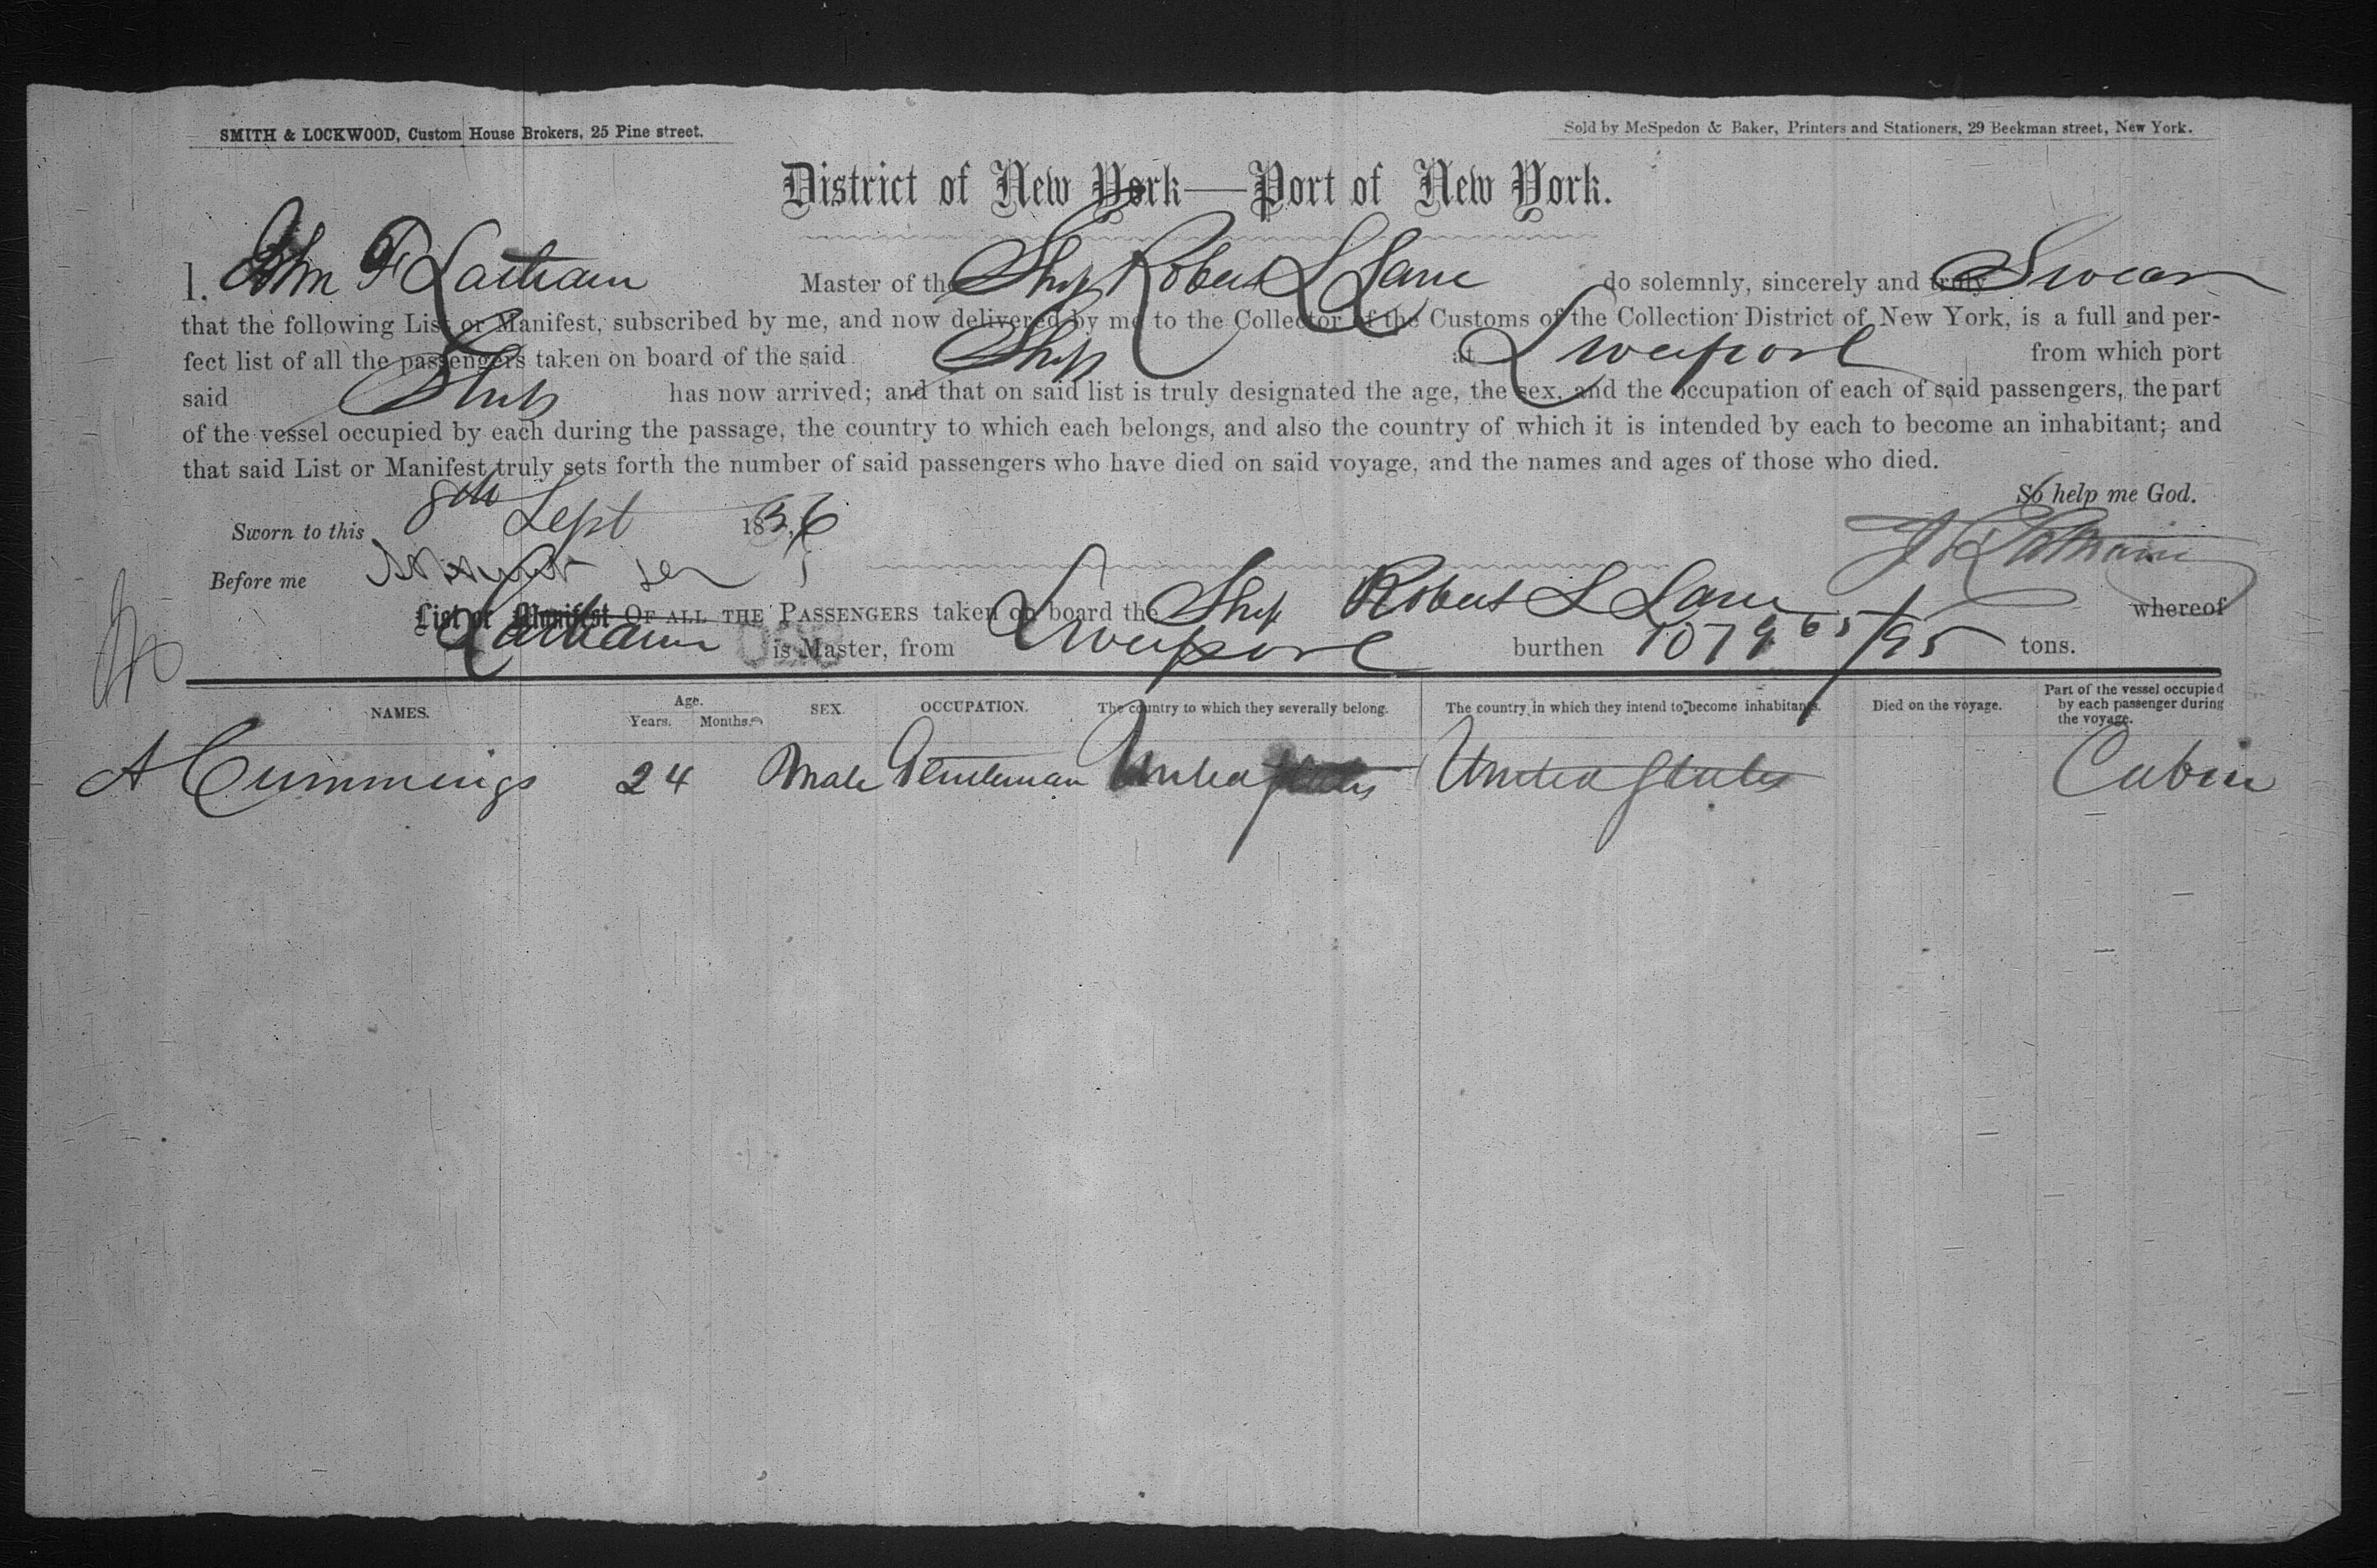 SMITH & LOCKWOOD, Custom House Brokers, 25 Pine street.
Sold by McSpedon & Baker, Printers and Stationers, 29 Beekman street, New York.
District of New York—Port of New York.
I, John F Latham Master of the Ship Robert L Lane do solemnly, sincerely and truly Swear
that the following List or Manifest, subscribed by me, and now delivered by me to the Collector of the Customs of the Collection District of New York, is a full and per-
fect list of all the passengers taken on board of the said Ship at Liverpool from which port
said Ship has now arrived; and that on said list is truly designated the age, the sex, and the occupation of each of said passengers, the part
of the vessel occupied by each during the passage, the country to which each belongs, and also the country of which it is intended by each to become an inhabitant; and
that said List or Manifest truly sets forth the number of said passengers who have died on said voyage, and the names and ages of those who died.
So help me God.
Sworn to this 8th Sept 1856
J F Latham
Before me
List or Manifest OF ALL THE PASSENGERS taken on board the Ship Robert L Lane whereof
Latham is Master, from Liverpool burthen 1079 65/95 tons.
NAMES. Age. Years. Months. SEX. OCCUPATION. The country to which they severally belong. The country in which they intend to become inhabitants. Died on the voyage. Part of the vessel occupied by each passenger during the voyage.
A Cummings 24 Male Gentleman United States United States Cabin